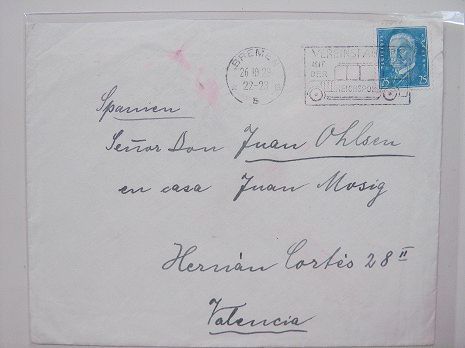 BREMEN
22-23
MIT
DER
REICHSPOST
25 25
Spanien
Señor Don Juan Ohlsen
en casa Juan Mosig
Hernán Cortés 28 II
Valencia